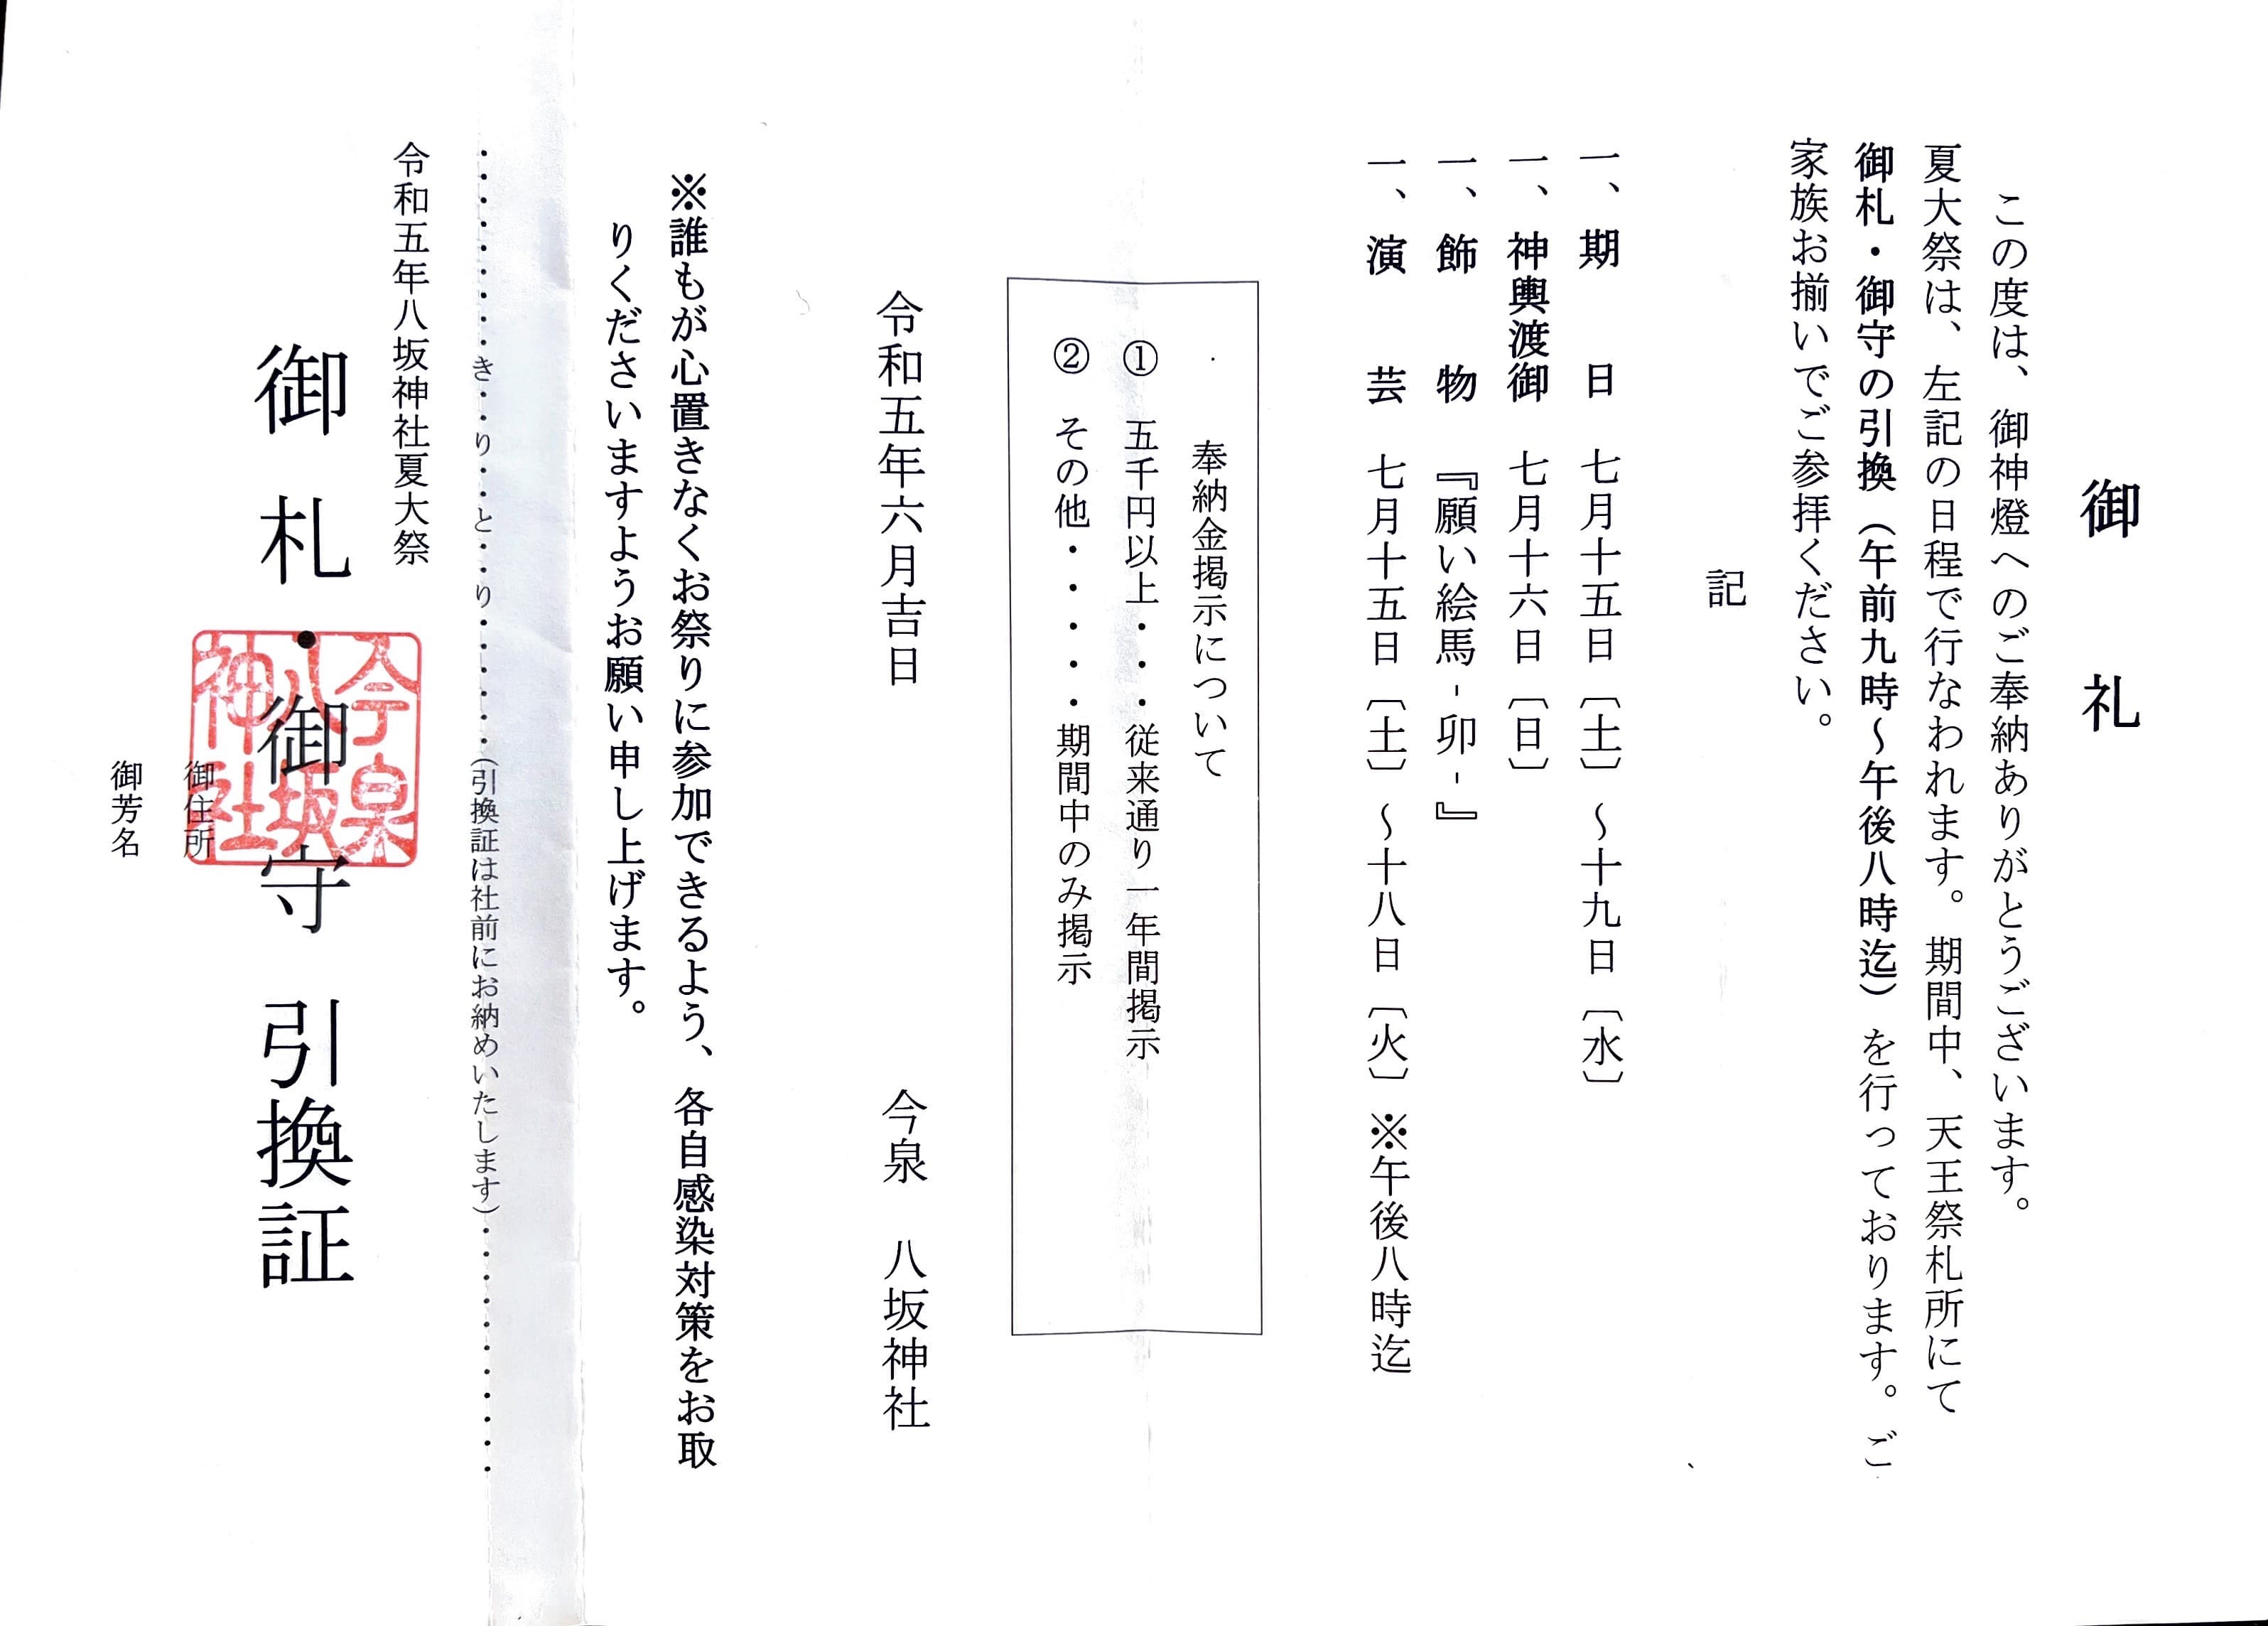 御礼
この度は、御神燈へのご奉納ありがとうございます。
夏大祭は、左記の日程で行なわれます。期間中、天王祭札所にて
御札・御守の引換（午前九時～午後八時迄）を行っております。ご
家族お揃いでご参拝ください。
記
一、期日　七月十五日〔土〕～十九日〔水〕
一、神輿渡御　七月十六日〔日〕
一、飾物　『願い絵馬-卯-』
一、演芸　七月十五日〔土〕～十八日〔火〕※午後八時迄
奉納金掲示について
①　五千円以上・・・従来通り一年間掲示
②　その他・・・・・期間中のみ掲示
令和五年六月吉日　今泉　八坂神社
※誰もが心置きなくお祭りに参加できるよう、各自感染対策をお取
りくださいますようお願い申し上げます。
・・・・・・・・・き・・り・・と・・り・・・・・・（引換証は社前にお納めいたします）・・・・・・・・・・・
令和五年八坂神社夏大祭
御札・御守　引換証
今泉
八坂
神社
御住所
御芳名